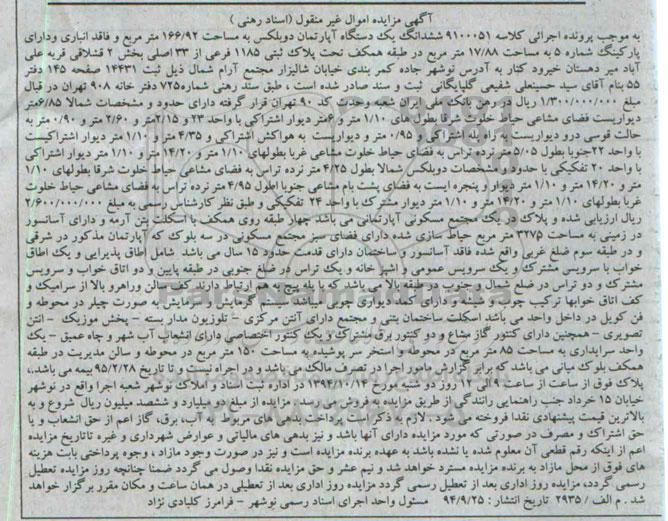 آگهی مزایده اموال غیر منقول (اسناد رهنی )
به موجب پرونده اجرائی کلاسه ۹۱۰۰۰۵۱ ششدانگ یک دستگاه آپارتمان دوبلکس به مساحت ۱۶۶/۹۲ متر مربع و فاقد انباری ودارای
پارکینگ شماره ۵ به مساحت ۱۷/۸۸ متر مربع در طبقه همکف تحت پلاک ثبتی ۱۱۸۵ فرعی از ۳۳ اصلی بخش ۲ قشلاقی قریه علی
آباد میر دهستان خیرود کنار به آدرس نوشهر جاده کمر بندی خیابان شالیزار مجتمع آرام شمال ذیل ثبت ۱۴۴۳۱ صفحه ۱۴۵ دفتر
۵۵ بنام آقای سید حسینعلی شفیعی گلپایگانی ثبت و سند صادر شده است ، طبق سند رهنی شماره۷۲۵ دفتر خانه ۹۰۸ تهران در قبال
مبلغ ۱/۳۰۰/۰۰۰/۰۰۰ ریال در رهن بانک ملی ایران شعبه وحدت کد ۹۰ تهران قرار گرفته دارای حدود و مشخصات شمالا ۶/۸۵متر
دیواریست فضای مشاعی حیاط خلوت شرقا بطولهای ۱/۱۰ متر و ۶متر دیوار اشتراکی با واحد ۲۳ و ۲/۱۵متر و ۲/۶۰ متر و ۰/۹۰ متر به
حالت قوسی درو دیواریست به راه پله اشتراکی و ۰/۹۵ متر و دیواریست به هواکش اشتراکی و ۴/۳۵ متر و ۱/۱۰ متر دیوار اشتراکیست
با واحد ۲۲جنوبا بطول ۵/۰۵ متر نرده تراس به فضای حیاط خلوت مشاعی غربا بطولهای ۱/۱۰ متر و ۱۴/۲۰ متر و ۱/۱۰ متر دیوار اشتراکی
با واحد ۲۰ تفکیکی با حدود و مشخصات دوبلکس شمالا بطول ۴/۲۵ متر نرده تراس به فضای مشاعی حیاط خلوت شرقا بطولهای ۱/۱۰
متر و ۱۴/۲۰ متر و ۱/۱۰ متر دیوار و پنجره ایست به فضای پشت بام مشاعی جنوبا بطول ۴/۹۵ متر نرده تراس به فضای مشاعی حیاط خلوت
غربا بطولهای ۱/۱۰ متر و ۱۴/۲۰ متر و ۱/۱۰ متر دیوار مشترک با واحد ۲۴ تفکیکی و طبق نظر کارشناس رسمی به مبلغ ۲/۶۰۰/۰۰۰/۰۰۰
ریال ارزیابی شده و پلاک در یک مجتمع مسکونی آپارتمانی می باشد چهار طبقه روی همکف با اسکلت بتن آرمه و دارای آسانسور
در زمینی به مساحت ۳۲۷۵ متر مربع حیاط سازی شده دارای فضای سبز مجتمع مسکونی در سه بلوک که آپارتمان مذکور در شرقی
و در طبقه سوم ضلع غربی واقع شده فاقد آسانسور و ساختمان دارای قدمت حدود ۱۵ سال می باشد شامل اطاق پذیرایی و یک اطاق
خواب با سرویس مشترک و یک سرویس عمومی و اشپز خانه و یک تراس در ضلع جنوبی در طبقه پایین و دو اتاق خواب و سرویس
مشترک و دو تراس در ضلع شمال و جنوب در طبقه بالا می باشد که با پله پیچ به هم ارتباط دارند کف سالن وراهرو بالا از سرامیک و
کف اتاق خوابها ترکیب چوب و شیشه و دارای کمد دیواری چوبی میباشد سیستم گرمایش و سرمایش به صورت چیلر در محوطه و
فن کویل در داخل واحد می باشد اسکلت ساختمان بتنی و مجتمع دارای آنتن مرکزی – تلوزیون مدار بسته – پخش موزیک – انتن
تصویری – همچنین دارای کنتور گاز مشاع و دو کنتور برق مشترک و یک کنتور اختصاصی دارای انشعاب آب شهر و چاه عمیق – یک
واحد سرایداری به مساحت ۸۵ متر مربع در محوطه و استخر سر پوشیده به مساحت ۱۵۰ متر مربع در محوطه و سالن مدیریت در طبقه
همکف بلوک میانی می باشد که برابر گزارش مامور اجرا در تصرف مالک می باشد و در اجراه نیست و تا تاریخ ۹۵/۲/۲۸ بیمه می باشد.،
پلاک فوق از ساعت از ساعت ۹ الی ۱۲ روز دو شنبه مورخ ۱۳۹۴/۱۰/۱۴ در اداره ثبت اسناد و املاک نوشهر شعبه اجرا واقع در نوشهر
خیابان ۱۵ خرداد جنب راهنمایی رانندگی از طریق مزایده به فروش می رسد . مزایده از مبلغ دو میلیارد و ششصد میلیون ریال شروع و به
بالاترین قیمت پیشنهادی نقدا فروخته می شود . لازم به ذکر است پرداخت بدهی های مربوط به آب، برق، گاز اعم از حق انشعاب و یا
حق اشتراک و مصرف در صورتی که مورد مزایده دارای آنها باشد و نیز بدهی های مالیاتی و عوارض شهرداری و غیره تاتاریخ مزایده
اعم از اینکه رقم قطعی آن معلوم شده یا نشده باشد به عهده برنده مزایده است و نیز در صورت وجود مازاد ، وجوه پرداختی بابت هزینه
های فوق از محل مازاد به برنده مزایده مسترد خواهد شد و نیم عشر و حق مزایده نقدا وصول می گردد ضمنا چنانچه روز مزایده تعطیل
رسمی گردد، مزایده روز اداری بعد از تعطیل رسمی گردد مزایده روز اداری بعد از تعطیلی در همان ساعت و مکان مقرر برگزار خواهد
شد . م الف / ۲۹۳۵ تاریخ انتشار : ۹۴/۹/۲۵ مسئول واحد اجرای اسناد رسمی نوشهر – فرامرز کلبادی نژاد